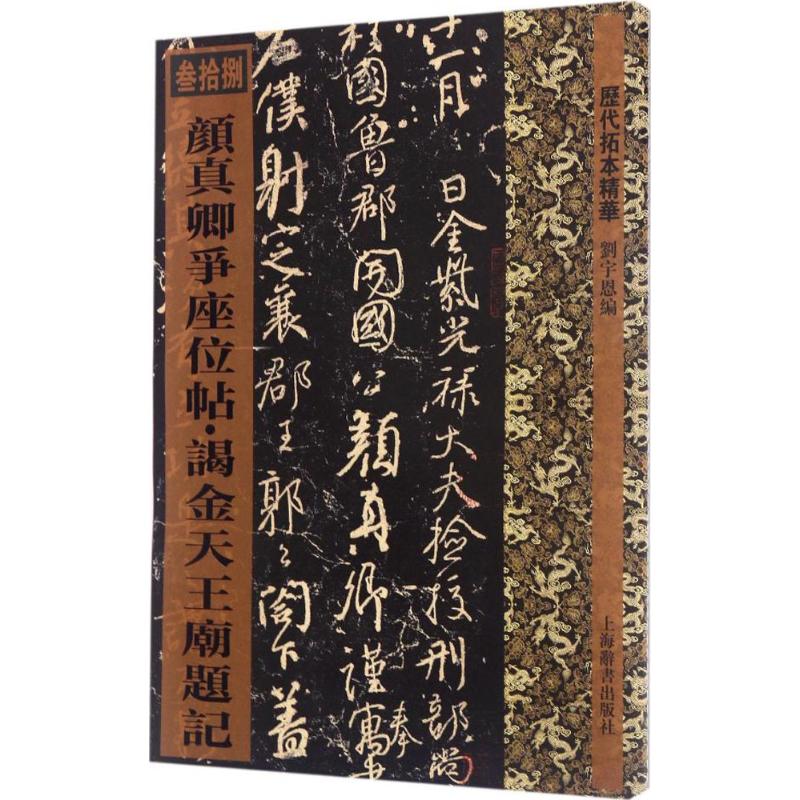 歷代拓本精華
劉宇恩編
上海辭書出版社
十一月
日金紫光祿大夫檢校刑部尚
柱國魯郡開國公顏真卿謹寓書奉
右僕射定襄郡王郭公閣下蓋
叁拾捌
顔真卿爭座位帖·謁金天王廟題記